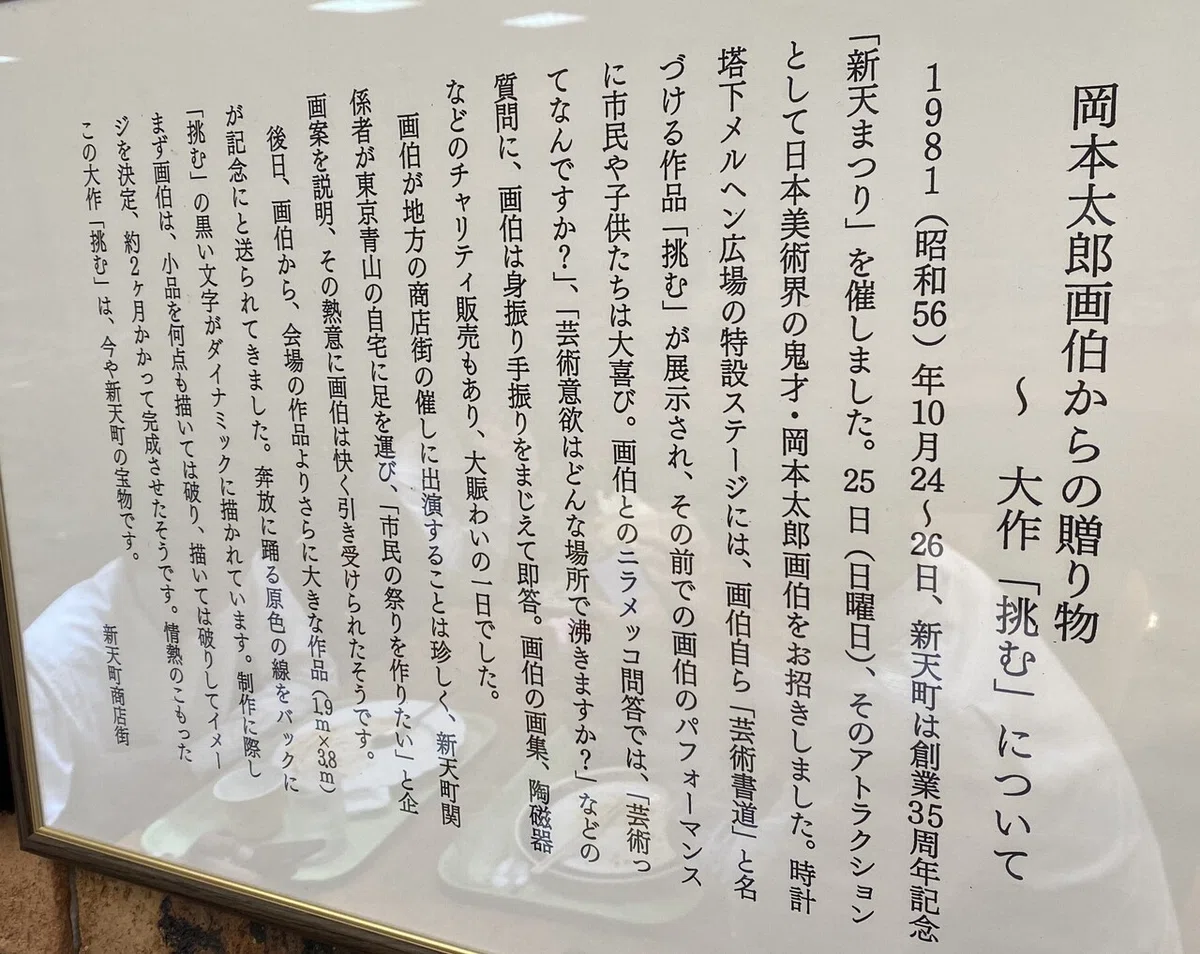 岡本太郎画伯からの贈り物
〜 大作「挑む」について
1981（昭和56）年10月24〜26日、新天町は創業35周年記念
「新天まつり」を催しました。25日（日曜日）、そのアトラクション
として日本美術界の鬼才・岡本太郎画伯をお招きしました。時計
塔下メルヘン広場の特設ステージには、画伯自ら「芸術書道」と名
づける作品「挑む」が展示され、その前での画伯のパフォーマンス
に市民や子供たちは大喜び。画伯とのニラメッコ問答では、「芸術っ
てなんですか？」、「芸術意欲はどんな場所で沸きますか？」などの
質問に、画伯は身振り手振りをまじえて即答。画伯の画集、陶磁器
などのチャリティ販売もあり、大賑わいの一日でした。
画伯が地方の商店街の催しに出演することは珍しく、新天町関
係者が東京青山の自宅に足を運び、「市民の祭りを作りたい」と企
画案を説明、その熱意に画伯は快く引き受けられたそうです。
後日、画伯から、会場の作品よりさらに大きな作品（1.9m×3.8m）
が記念にと送られてきました。奔放に踊る原色の線をバックに
「挑む」の黒い文字がダイナミックに描かれています。制作に際し
まず画伯は、小品を何点も描いては破り、描いては破りしてイメー
ジを決定、約2ヶ月かかって完成させたそうです。情熱のこもった
この大作「挑む」は、今や新天町の宝物です。
新天町商店街